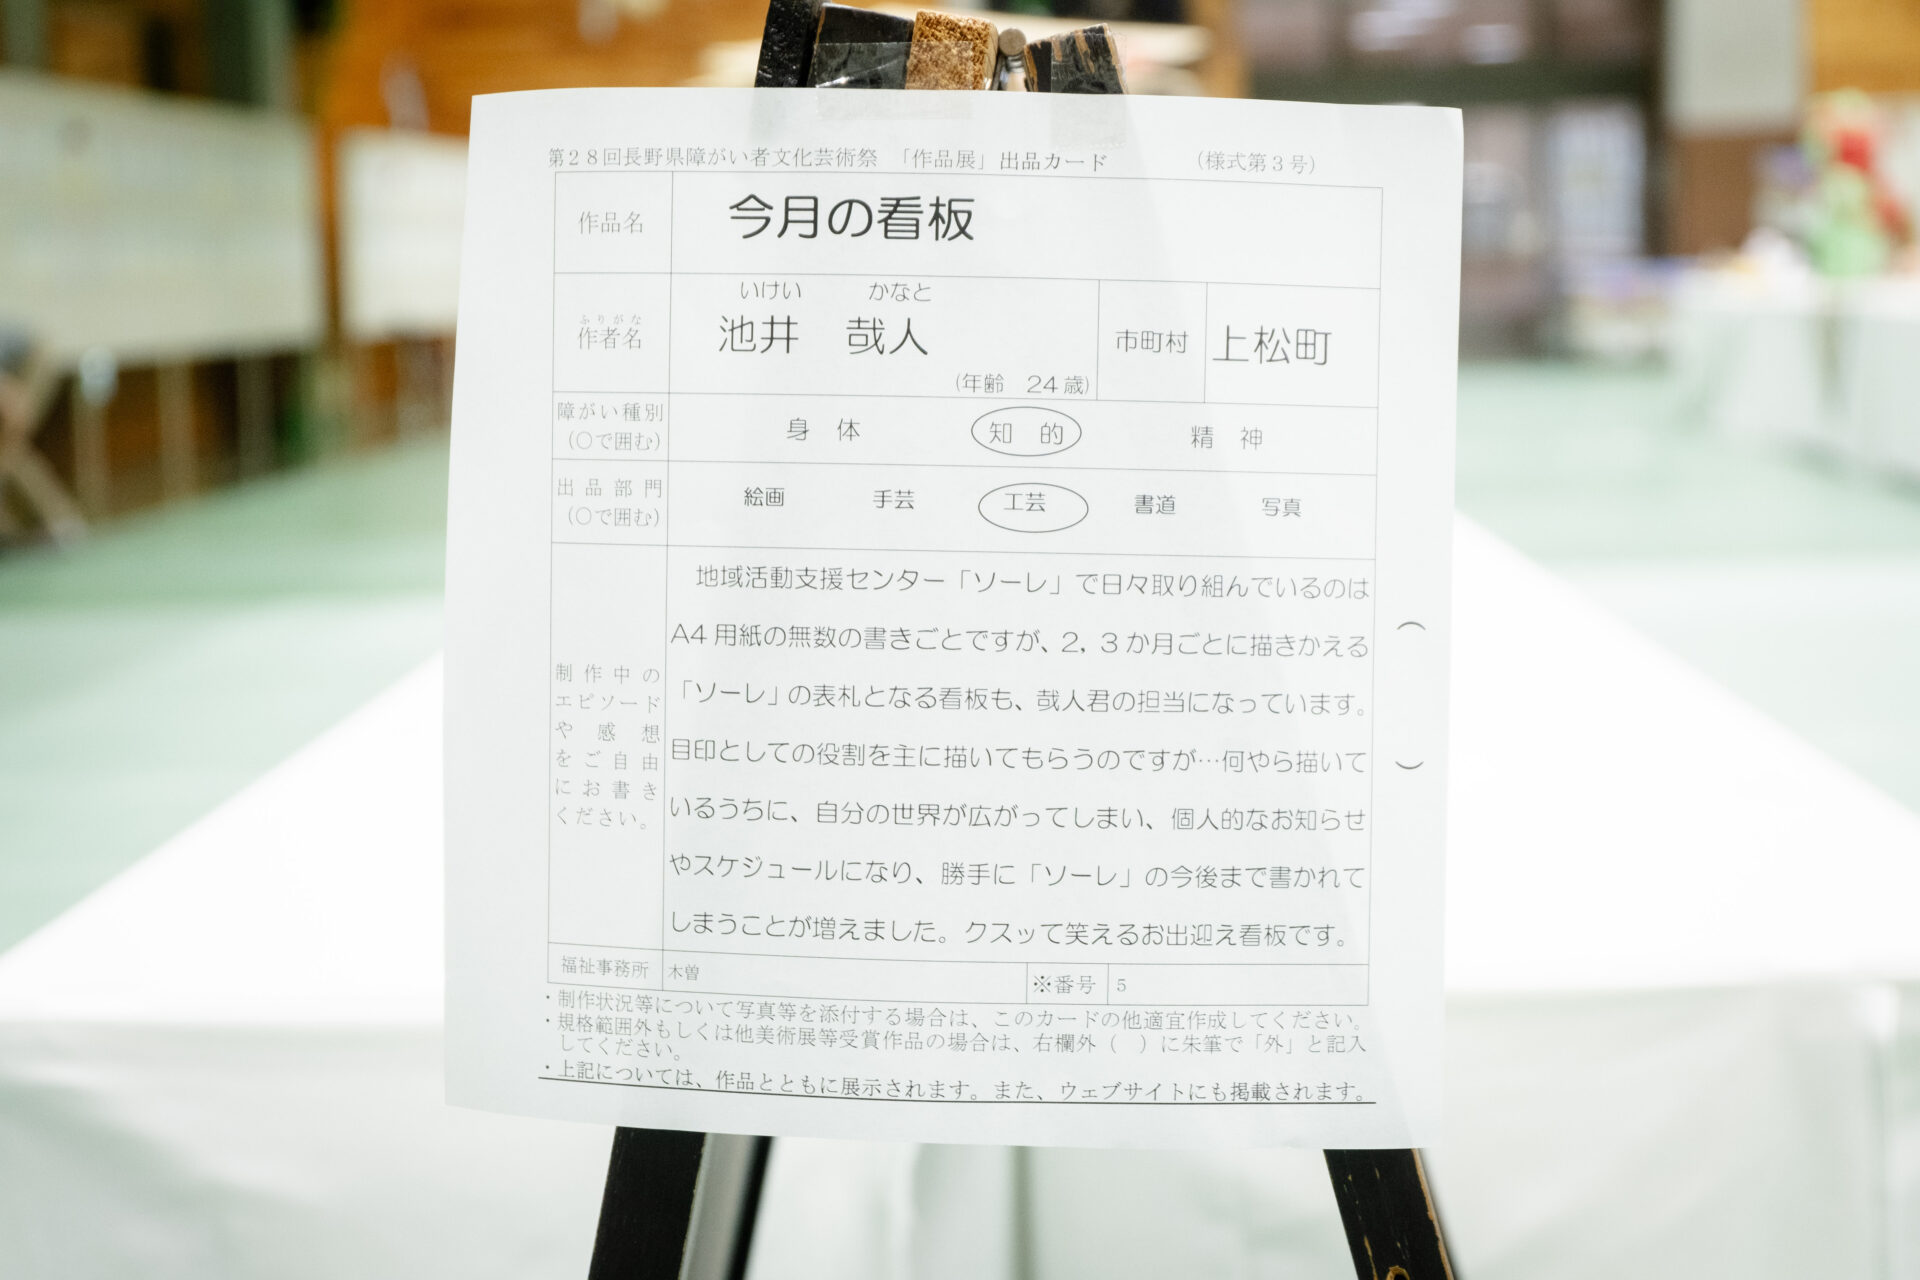 第28回長野県障がい者文化芸術祭 「作品展」出品カード (様式第3号)
作品名 今月の看板
いけい かなと
ふりがな
作者名 池井 哉人 市町村 上松町
(年齢 24歳)
障がい種別
(○で囲む) 身体 知的 精神
出品部門
(○で囲む) 絵画 手芸 工芸 書道 写真
制作中の
エピソード
や感想
をご自由
にお書き
ください。
地域活動支援センター「ソーレ」で日々取り組んでいるのは
A4用紙の無数の書きごとですが、2,3か月ごとに描きかえる
「ソーレ」の表札となる看板も、哉人君の担当になっています。
目印としての役割を主に描いてもらうのですが…何やら描いて
いるうちに、自分の世界が広がってしまい、個人的なお知らせ
やスケジュールになり、勝手に「ソーレ」の今後まで書かれて
しまうことが増えました。クスッて笑えるお出迎え看板です。
( )
福祉事務所 木曽 ※番号 5
・制作状況等について写真等を添付する場合は、このカードの他適宜作成してください。
・規格範囲外もしくは他美術展等受賞作品の場合は、右欄外( )に朱筆で「外」と記入
してください。
・上記については、作品とともに展示されます。また、ウェブサイトにも掲載されます。